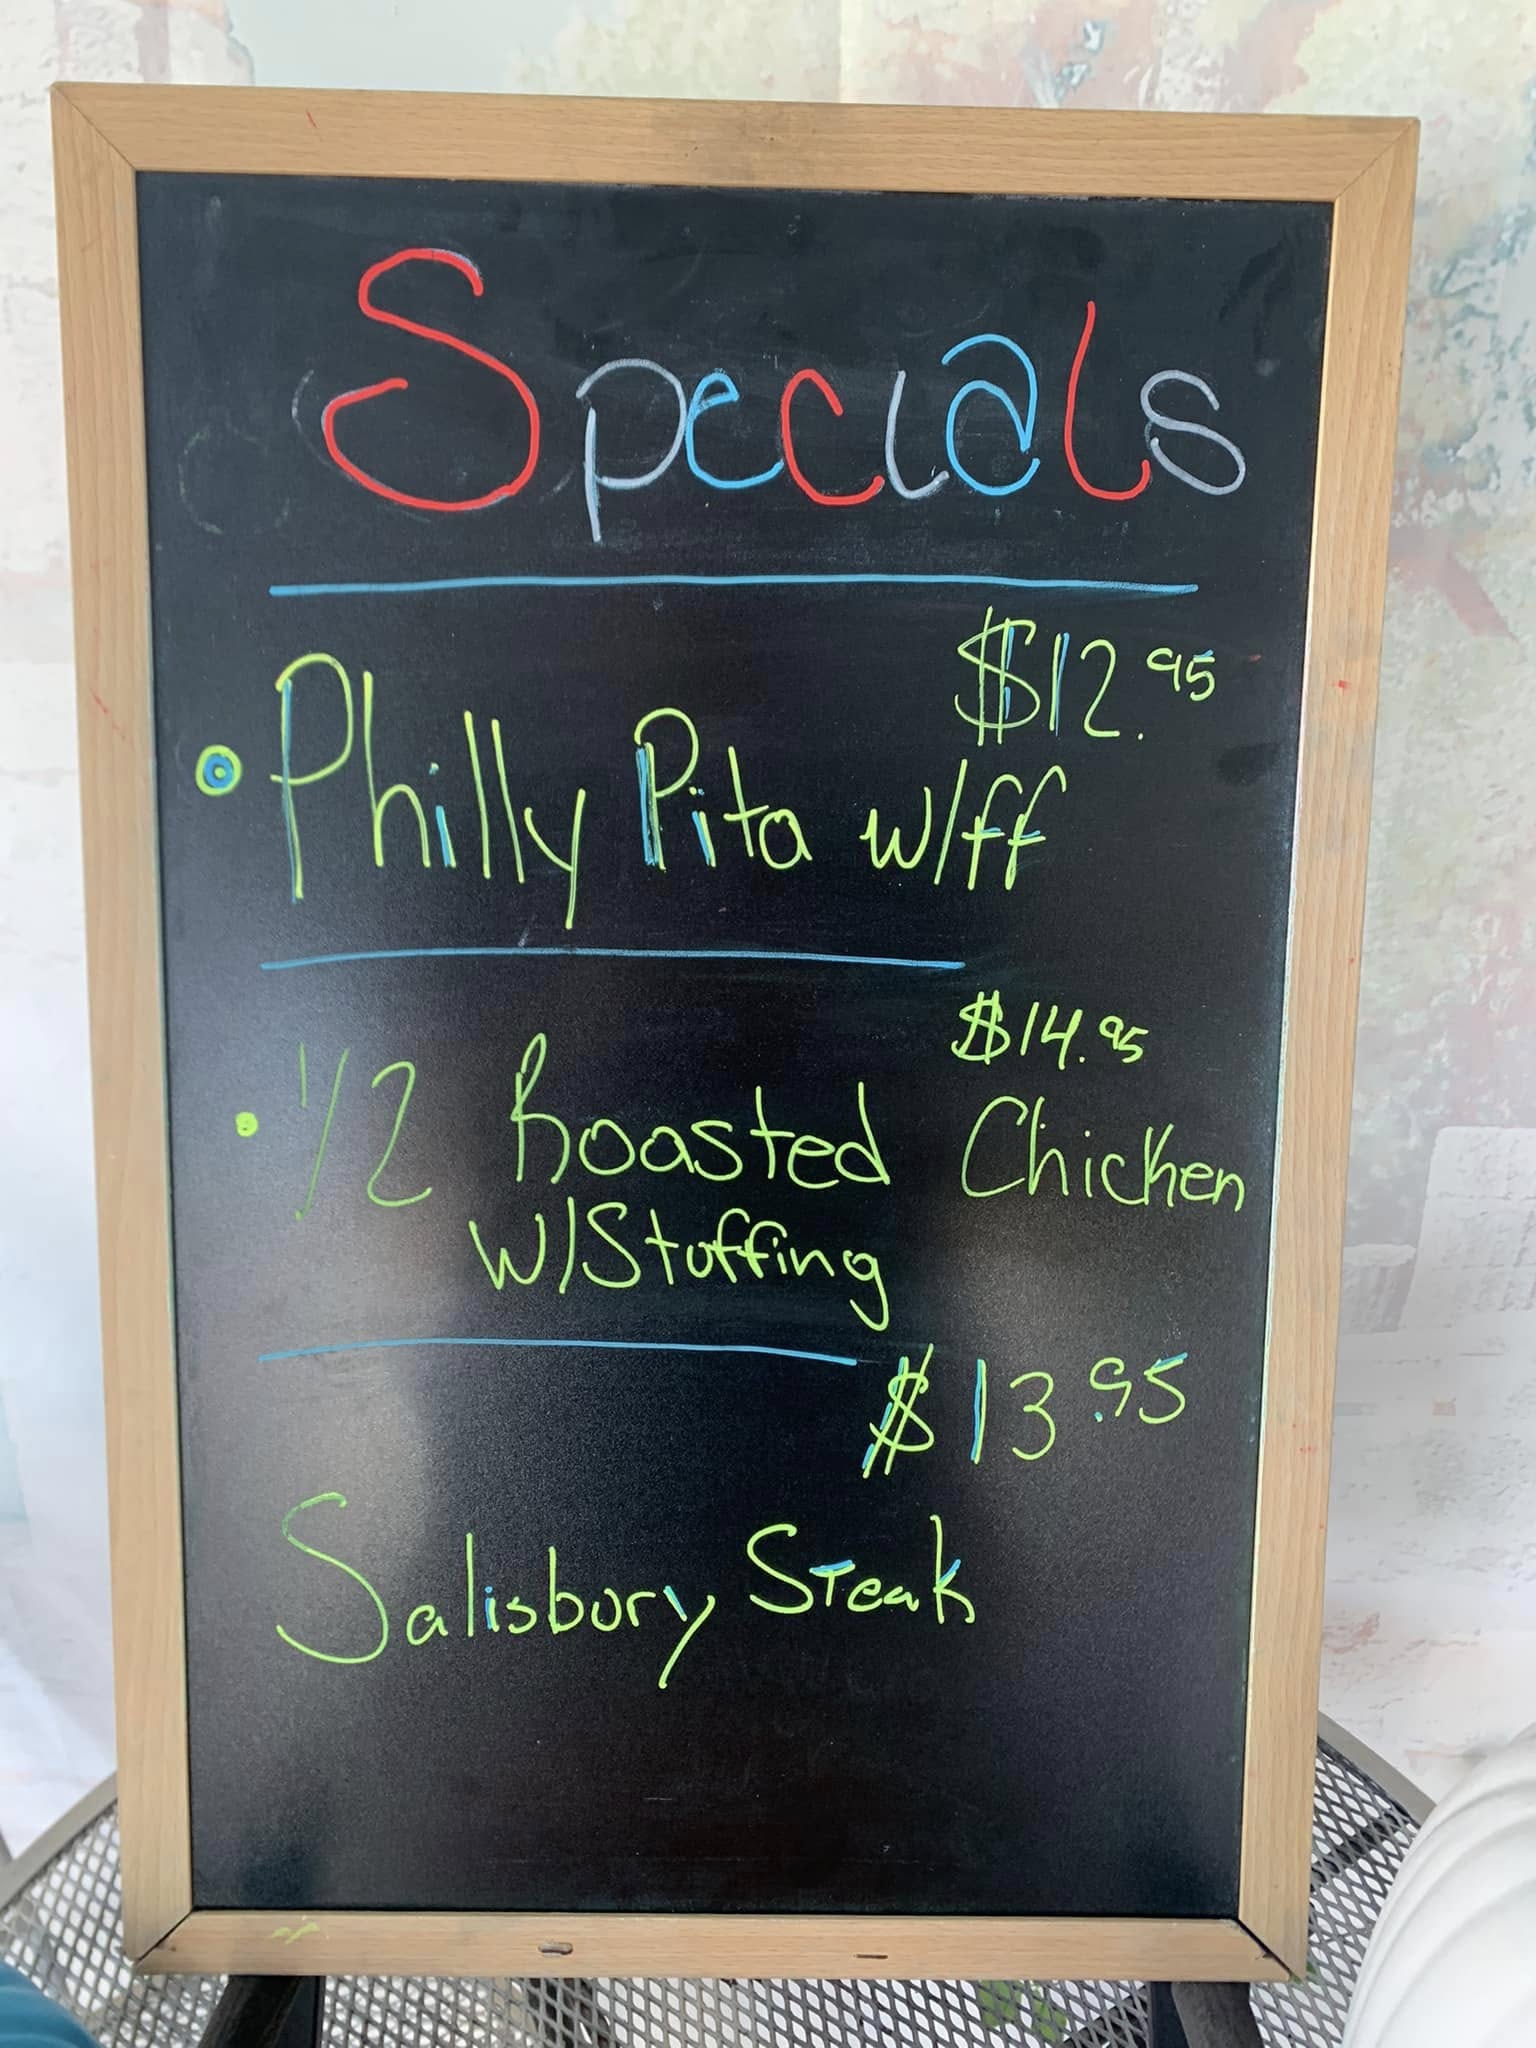 Specials
$12.95
• Philly Pita w/ff
$14.95
• 1/2 Roasted Chicken
w/Stuffing
$13.95
Salisbury Steak